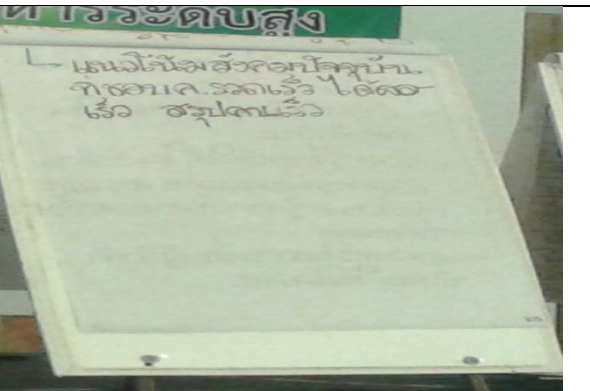 หารระดับสูง
แนวโน้มสังคมปัจจุบัน
ที่ชอบค.รวดเร็ว ได้ผล
เร็ว สรุปความเร็ว